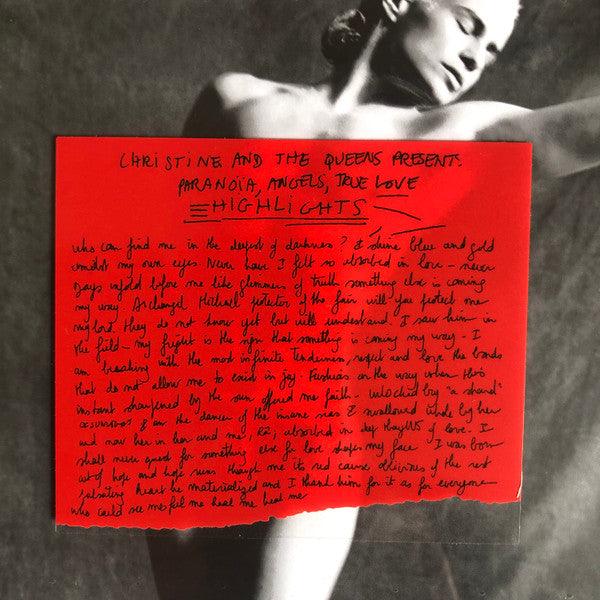 CHRISTINE AND THE QUEENS PRESENT:
PARANOÏA, ANGELS, TRUE LOVE
HIGHLIGHTS
who can find me in the deepest of darkness? I shine blue and gold
amidst my own eyes Never have I felt so absorbed in love - never
Days unfold before me like glimmers of truth something else is coming
my way. Archangel Michael protector of the fair will you protect me
my lord. they do not know yet but will understand. I saw him in
the field - my fright is the sign that something is coming my way - I
am breaking with the most infinite tenderness, respect and love the bonds
that do not allow me to exist in joy. on the way when this
instant sharpened by the sun offered me faith - unlocked by "a shard"
I am the dancer of the insane I swallowed whole by her
and now her in him and me, absorbed in deep of love. I
shall never quest for something else for love shapes my face. I was born
out of hope and hope runs though me its red cause oblivious of the rest
pulsating heart he materialized and I thank him for it as for everyone
who could see me feel me heal me heal me